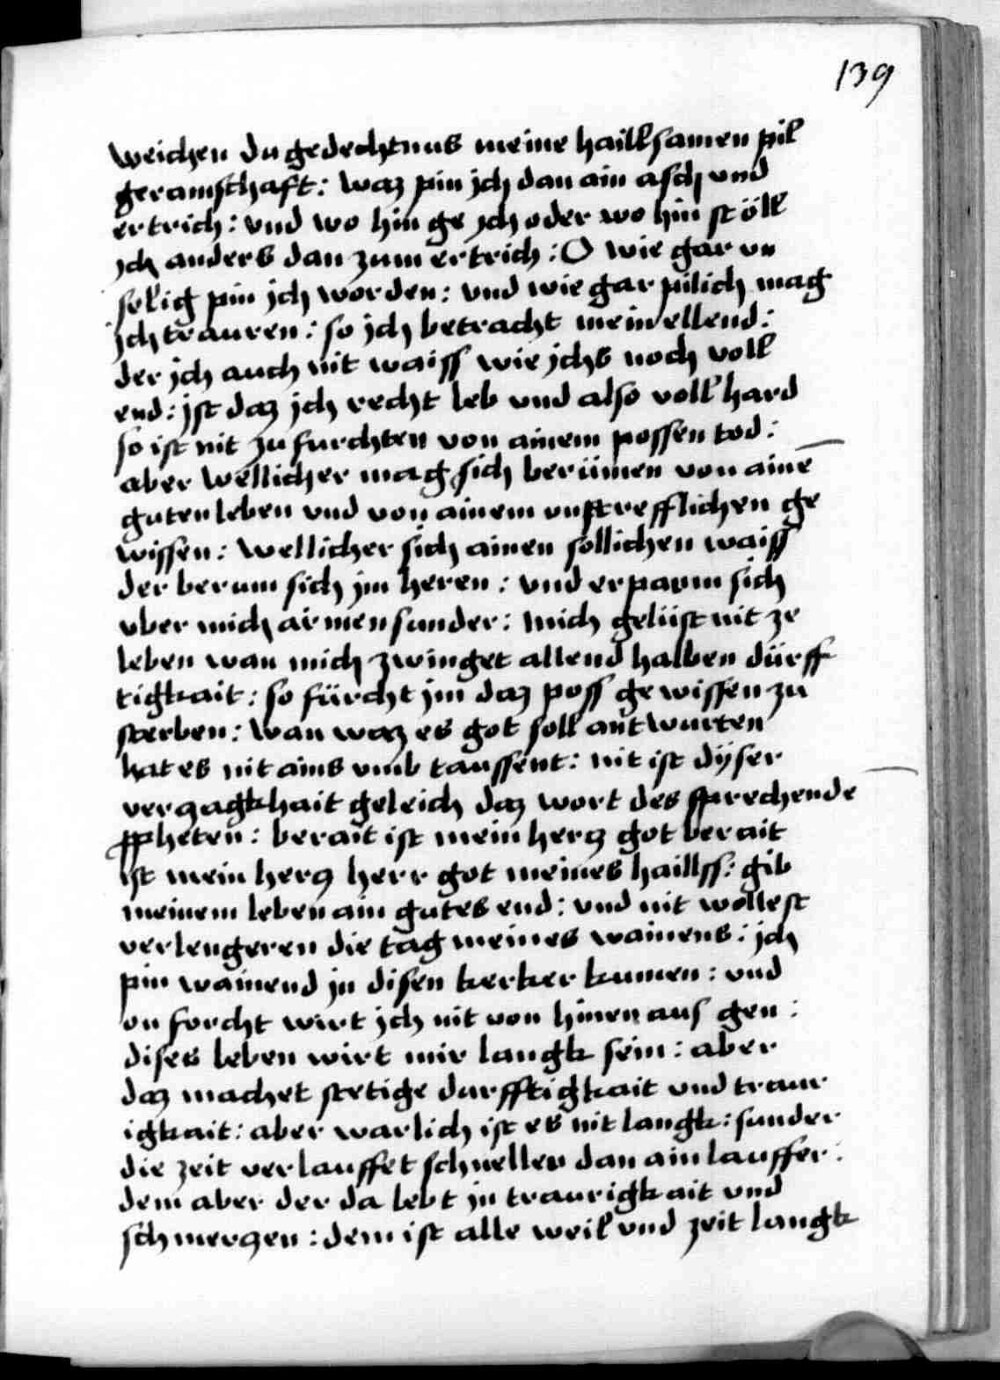 139
weichen du gedechtnus meine haillsamen pil
geramschaft : waz pin jch dan ain asch vnd
ertrich : vnd wo hin ge jch oder wo hin stöll
jch anders dan zum ertrich : O wie gar vn
selig pin jch worden : vnd wie gar pilich mag
jch trauren : so jch betracht mein ellend :
der jch auch nit waiss wie jchs noch voll
end : jst daz jch recht leb vnd also voll hard
so ist nit zu furchten von ainem possen tod :
aber wellicher mag sich berümen von ainē
guten leben vnd von ainem vnstrefflichen ge
wissen : wellicher sich ainen sollichen waiss
der berum sich jm heren : vnd erparm sich
vber mich armen sunder : mich gelüst nit ze
leben wan mich zwinget allend halben dürff
tigkait : so fürcht jm daz poss gewissen zu
sterben : wan waz es got soll antwurten
hat es nit ains vmb taussent : nit ist dyser
verzagkhait geleich daz wort des sprechende
ppheten : berait ist mein herz got berait
ist mein herz herr got meines haillss : gib
meinem leben ain gutes end : vnd nit wöllest
verlengeren die tag meines wainens : jch
pin wainend jn disen kerker kumen : vnd
on forcht wirt jch nit von hinen aus gen :
dises leben wirt mir langk sein : aber
daz machet stetige durfftigkait vnd traur
igkait : aber warlich ist es nit langk : sunder
die zeit verlauffet schneller dan ain lauffer :
dem aber der da lebt jn traurigkait vnd
schmerzen : dem ist alle weil vnd zeit langk